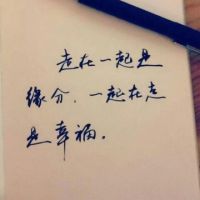 走在一起是
缘分，一起在走
是幸福.